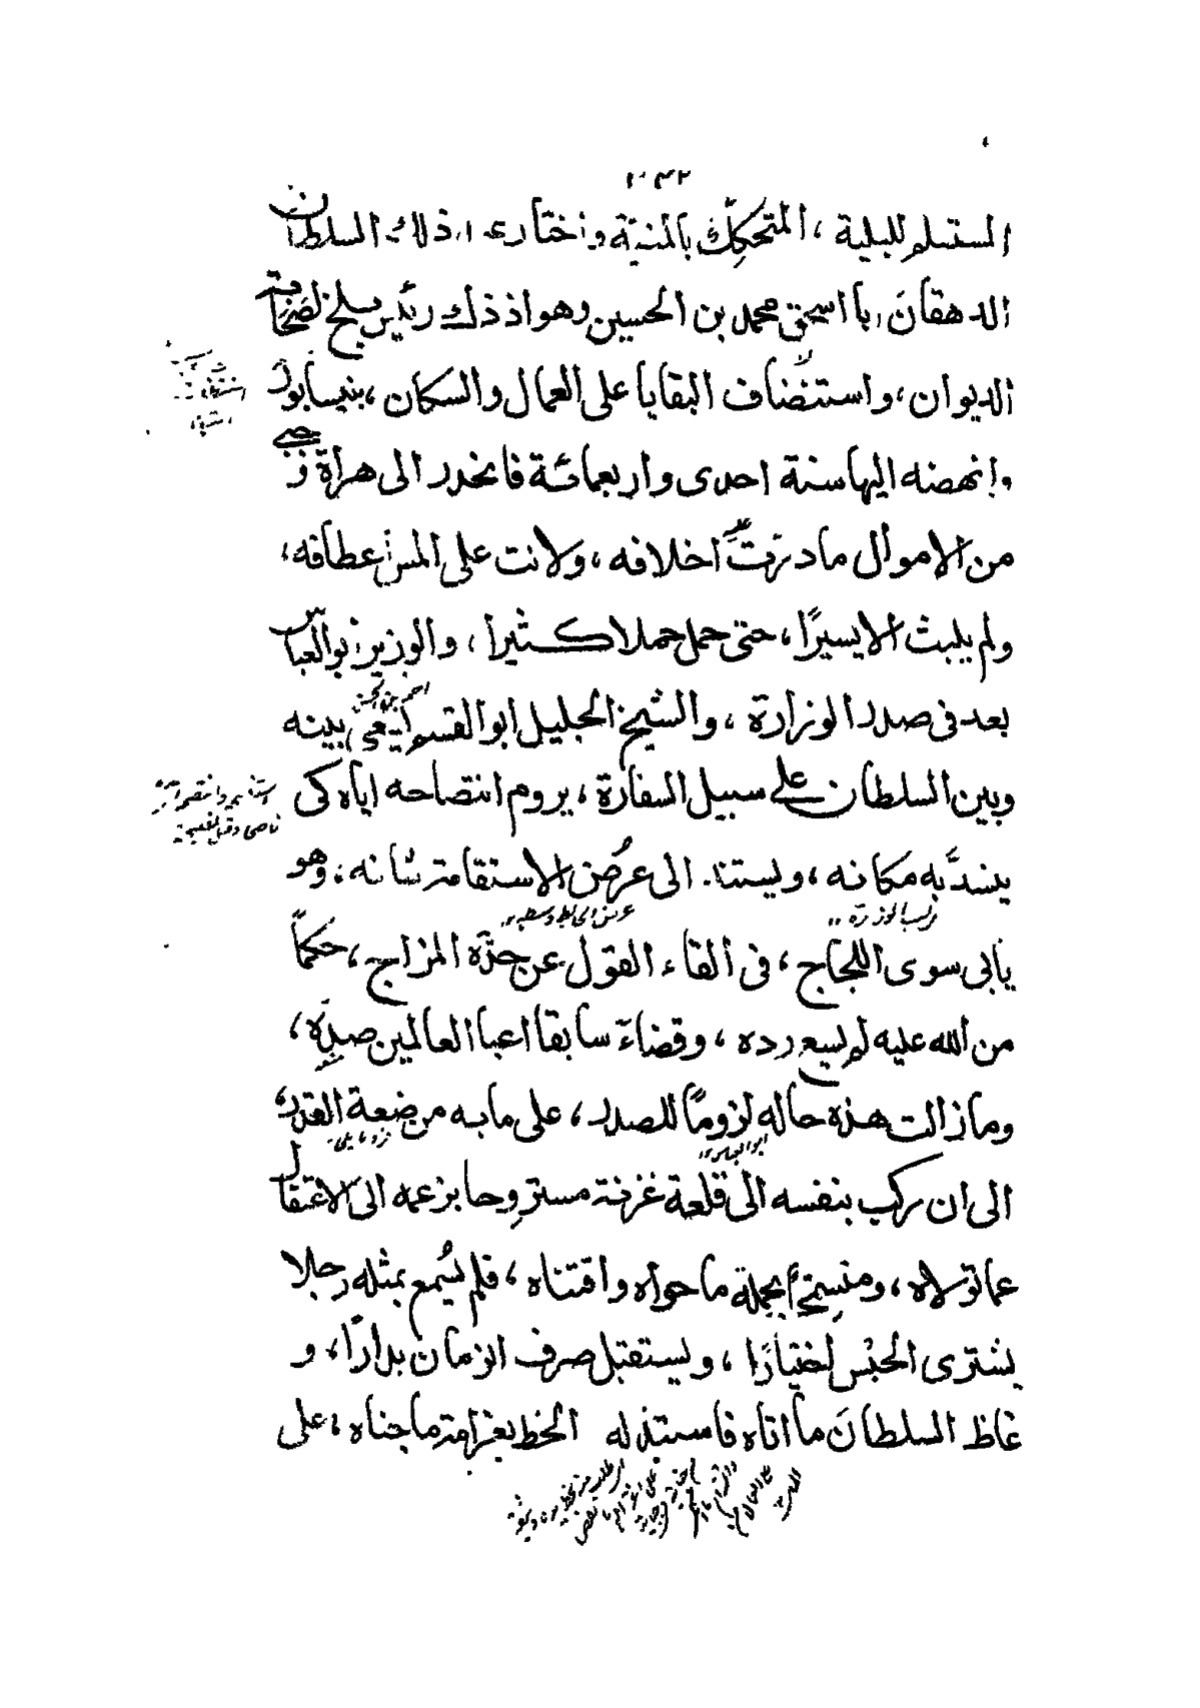 ٢٠٤٢
المستسلم للبلية ، المتحكك بالمنية واختار عند ذلك السلطان
الدهقان ابا اسحق محمد بن الحسين وهو اذ ذلك رئيس بلخ لضخامة
الديوان ، واستنضاف البقايا على العمال والسكان ، بنيسابور
وانهضه اليها سنة احدى واربعمائة فانحدر الى هراة فزجى
من الاموال ما درت عليه اخلافه ، ولانت على المس اعطافه ،
ولم يلبث الا يسيرًا ، حتى حمل حملا كثيرا ، والوزير ابو العباس
بعد فى صدر الوزارة ، والشيخ الجليل ابو القسم يسعى بينه
احمد بن الحسن
وبين السلطان على سبيل السفارة ، يروم انتصاحه اياه كى
ينسدَّ به مكانه ، ويستند الى عرُض الاستقامة شانه ، وهو
يابى سوى اللجاج ، فى القاء القول عن حدّه المزاج ، حكمًا
من الله عليه لم يسع رده ، وقضاءً سابقا اعيا العالمين صدّه ،
وما زالت هذه حاله لزومًا للصدر ، على ما به من ضعة القدر ،
ابو العباس
الى ان ركب بنفسه الى قلعة غزنة مستروحا بزعمه الى الاعتقال
عما تولاه ، ومنسمحًا بجملة ما حواه واقتناه ، فلم يُسمع بمثله رجلا
يشترى الحبْس اختيارًا ، ويستقبل صرف الزمان بدارًا ، و
غاظ السلطانَ ما اتاه فاستبذله الخط بغرامة ما جناه ، على